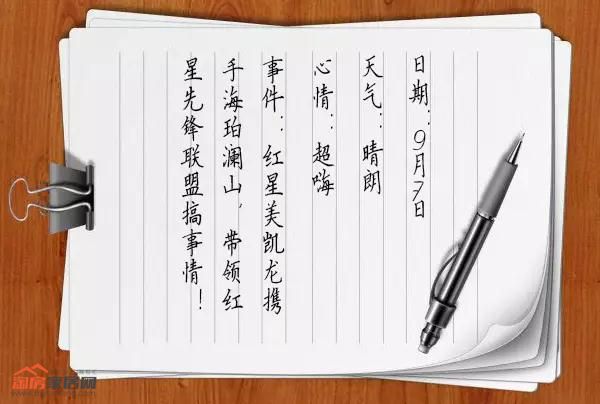 日期：9月7日
天气：晴朗
心情：超嗨
事件：红星美凯龙携
手海珀澜山，带领红
星先锋联盟搞事情！
淘房家居网